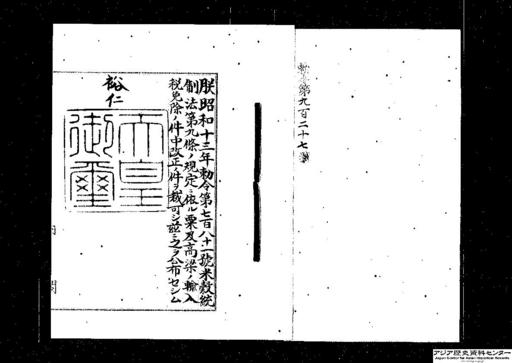 勅令第九百二十七號
朕昭和十三年勅令第七百八十一號米穀統
制法第九條ノ規定ニ依ル粟及高粱ノ輸入
税免除ノ件中改正ノ件ヲ裁可シ茲ニ之ヲ公布セシム
裕仁
天皇
御璽
内閣
アジア歴史資料センター
Japan Center for Asian Historical Records